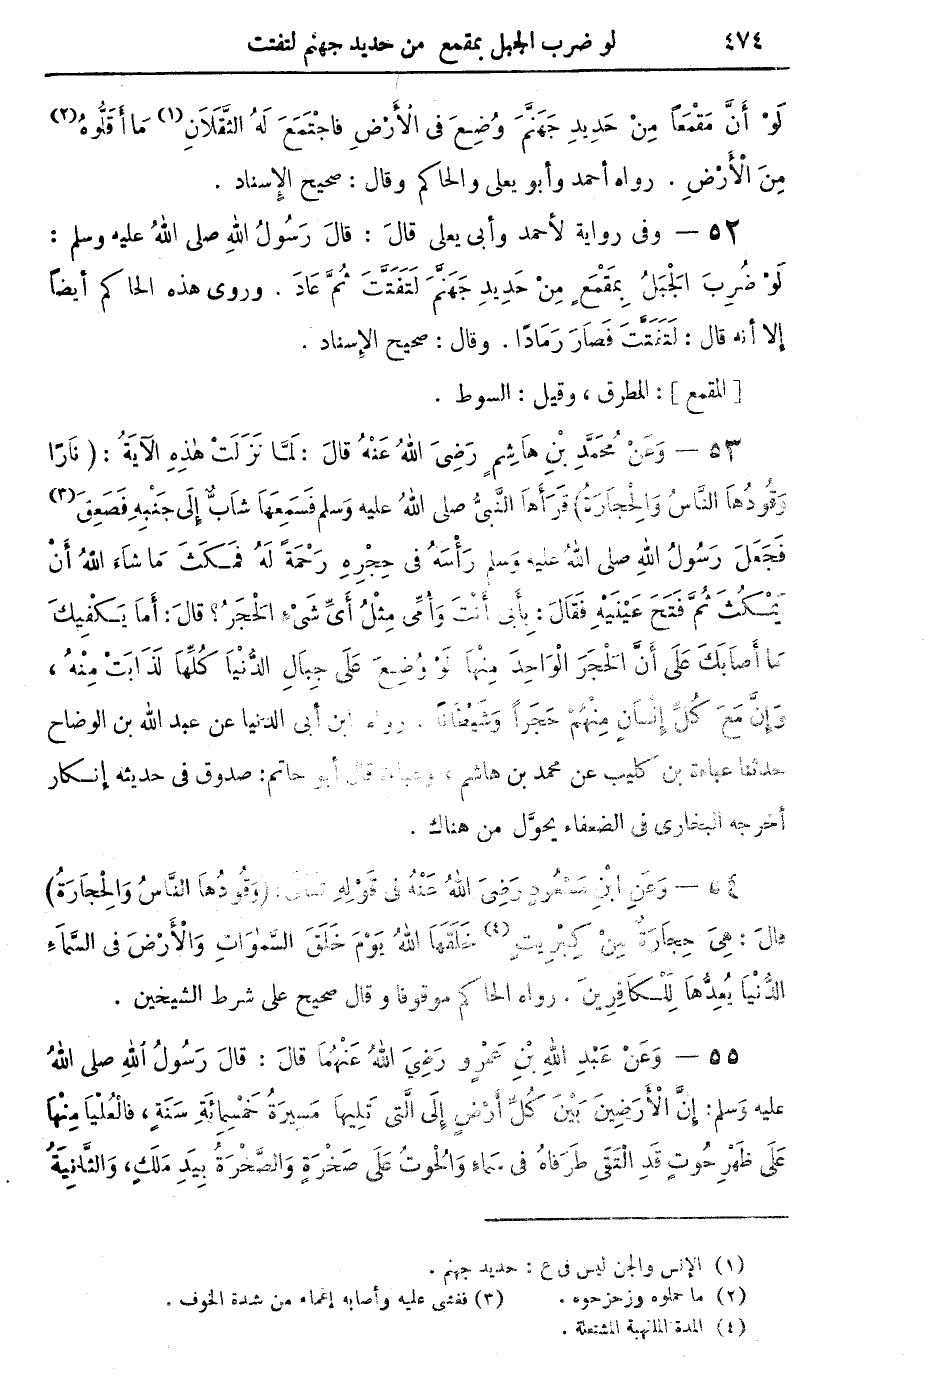 ٤٧٤ لو ضرب الجبل بمقمع من حديد جهنم لتفتت
لَوْ أَنَّ مَقْمَعاً مِنْ حَدِيدِ جَهَنَّمَ وُضِعَ فى الْأَرْضِ فاجْتَمَعَ لَهُ الثَّقَلَانِ(١) مَا أَقَلُّوهُ(٢)
مِنَ الْأَرْضِ . رواه أحمد وأبو يعلى والحاكم وقال : صحيح الإسناد .
٥٢ — وفى رواية لأحمد وأبى يعلى قالَ : قالَ رَسُولُ اللهِ صلى اللهُ عليه وسلم :
لَوْ ضُرِبَ الْجَبَلُ بِمَقْمَعٍ مِنْ حَدِيدِ جَهَنَّمَ لَتَفَتَّتَ ثُمَّ عَادَ . وروى هذه الحاكم أيضاً
إلا أنه قال : لَتَفَتَّتَ فَصَارَ رَمَادًا . وقال : صحيح الإسناد .
[ المقمع ] : المطرق ، وقيل : السوط .
٥٣ — وَعَنْ مُحَمَّدِ بْنِ هَاشِمٍ رَضِىَ اللهُ عَنْهُ قالَ : لَمَّا نَزَلَتْ هٰذِهِ الآيَةُ : ( نَارًا
وَقُودُهَا النَّاسُ وَالْحِجَارَةُ) قَرَأَهَا النَّبِىُّ صلى اللهُ عليه وَسلم فَسَمِعَهَا شَابٌّ إِلَى جَنْبِهِ فَصَعِقَ(٣)
فَجَعَلَ رَسُولُ اللهِ صلى اللهُ عليه وَسلم رَأْسَهُ فى حِجْرِهِ رَحْمَةً لَهُ فَمَكَثَ مَا شَاءَ اللهُ أَنْ
يَمْكُثَ ثُمَّ فَتَحَ عَيْنَيْهِ فَقَالَ : بِأَبِى أَنْتَ وَأُمِّى مِثْلُ أَىِّ شَىْءٍ الْحَجَرُ ؟ قالَ : أَمَا يَكْفِيكَ
مَا أَصَابَكَ عَلَى أَنَّ الْحَجَرَ الْوَاحِدَ مِنْهَا لَوْ وُضِعَ عَلَى جِبَالِ الدُّنْيَا كُلِّهَا لَذَابَتْ مِنْهُ ،
وَإِنَّ مَعَ كُلِّ إِنْسَانٍ مِنْهُمْ حَجَراً وَشَيْطَاناً . رواه ابن أبى الدنيا عن عبد الله بن الوضاح
حدثنا عباءة بن كليب عن محمد بن هاشم ، وعباءة قال أبو حاتم : صدوق فى حديثه إنكار
أخرجه البخارى فى الضعفاء يحوَّل من هناك .
٥٤ — وَعَنِ ابْنِ مَسْعُودٍ رَضِىَ اللهُ عَنْهُ فى قَوْلِهِ تَعَالَى : (وَقُودُهَا النَّاسُ وَالْحِجَارَةُ)
قالَ : هِىَ حِجَارَةٌ مِنْ كِبْرِيتٍ(٤) خَلَقَهَا اللهُ يَوْمَ خَلَقَ السَّمٰوَاتِ وَالْأَرْضَ فى السَّمَاءِ
الدُّنْيَا يُعِدُّهَا لِلْكَافِرِينَ . رواه الحاكم موقوفا وقال صحيح على شرط الشيخين .
٥٥ — وَعَنْ عَبْدِ اللهِ بْنِ عَمْرٍو رَضِيَ اللهُ عَنْهُمَا قالَ : قالَ رَسُولُ اللهِ صلى اللهُ
عليه وَسلم : إِنَّ الْأَرَضِينَ بَيْنَ كُلِّ أَرْضٍ إِلَى الَّتِى تَلِيهَا مَسِيرَةُ خَمْسِمِائَةِ سَنَةٍ ، فالْعُلْيَا مِنْهَا
عَلَى ظَهْرِ حُوتٍ قَدِ الْتَقَى طَرَفَاهُ فى سَمَاءٍ وَالْحُوتُ عَلَى صَخْرَةٍ وَالصَّخْرَةُ بِيَدِ مَلَكٍ ، وَالثَّانِيَةُ
(١) الإنس والجن ليس فى ع : حديد جهنم .
(٢) ما حملوه وزحزحوه . (٣) فغشى عليه وأصابه إغماء من شدة الخوف .
(٤) المدة الملتهبة المشتعلة .